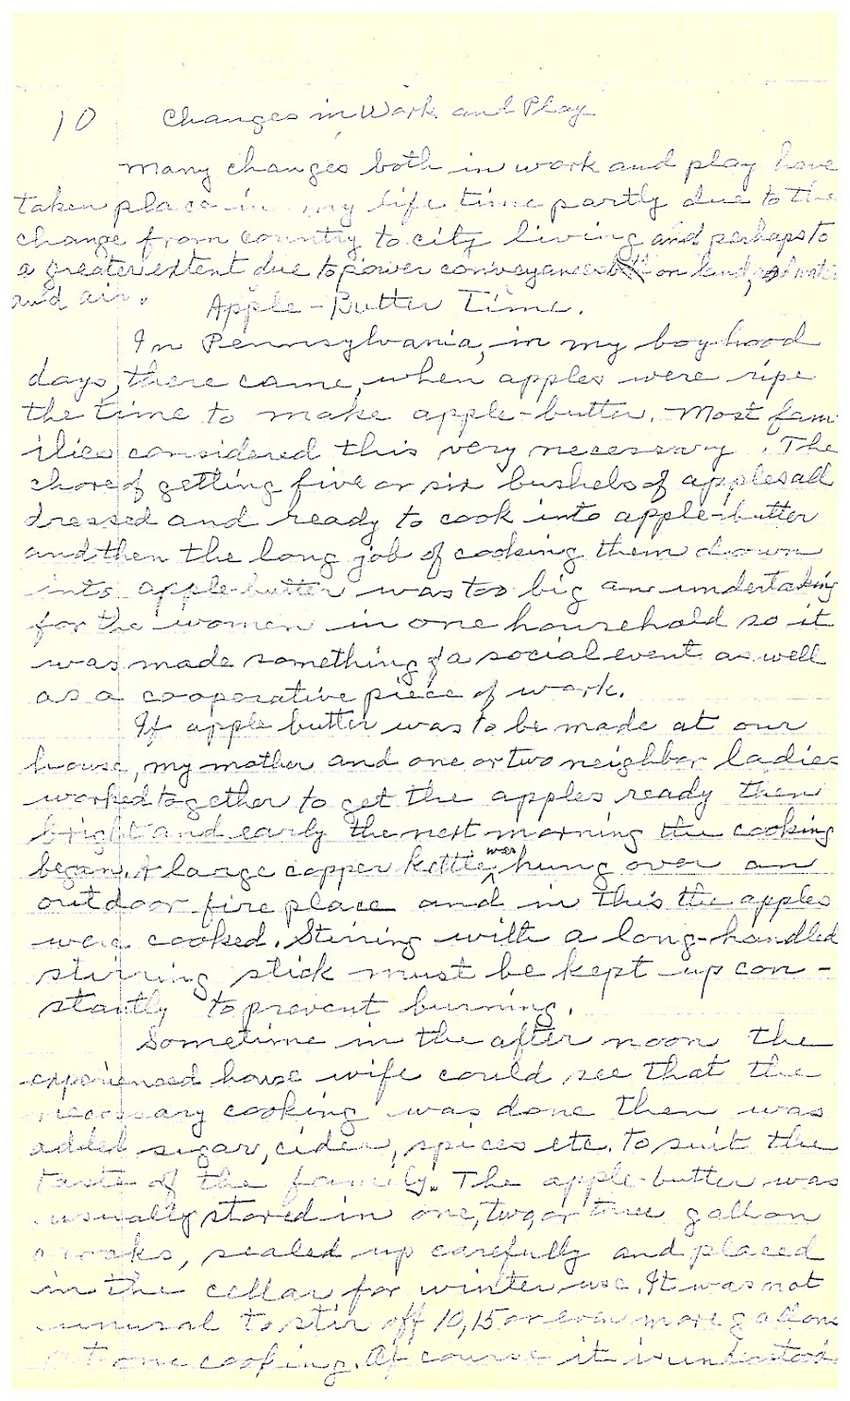 10 Changes in Work and Play
Many changes both in work and play have
taken place in my life time partly due to the
change from country to city living and perhaps to
a greater extent due to power conveyances on land, water
and air.
Apple-Butter Time.
In Pennsylvania, in my boyhood
days, there came, when apples were ripe
the time to make apple-butter. Most fam-
ilies considered this very necessary. The
chore of getting five or six bushels of apples all
dressed and ready to cook into apple-butter
and then the long job of cooking them down
into apple-butter was too big an undertaking
for the women in one household so it
was made something of a social event as well
as a cooperative piece of work.
If apple butter was to be made at our
house, my mother and one or two neighbor ladies
worked together to get the apples ready then
bright and early the next morning the cooking
began. A large copper kettle was hung over an
outdoor fire place and in this the apples
were cooked. Stirring with a long-handled
stirring stick must be kept up con-
stantly to prevent burning.
Sometime in the after noon the
experienced house wife could see that the
necessary cooking was done then was
added sugar, cider, spices etc. to suit the
taste of the family. The apple-butter was
usually stored in one, two, or three gallon
croaks, sealed up carefully and placed
in the cellar for winter use. It was not
unusual to stir off 10, 15 or even more gallons
at one cooking. Of course it is understood